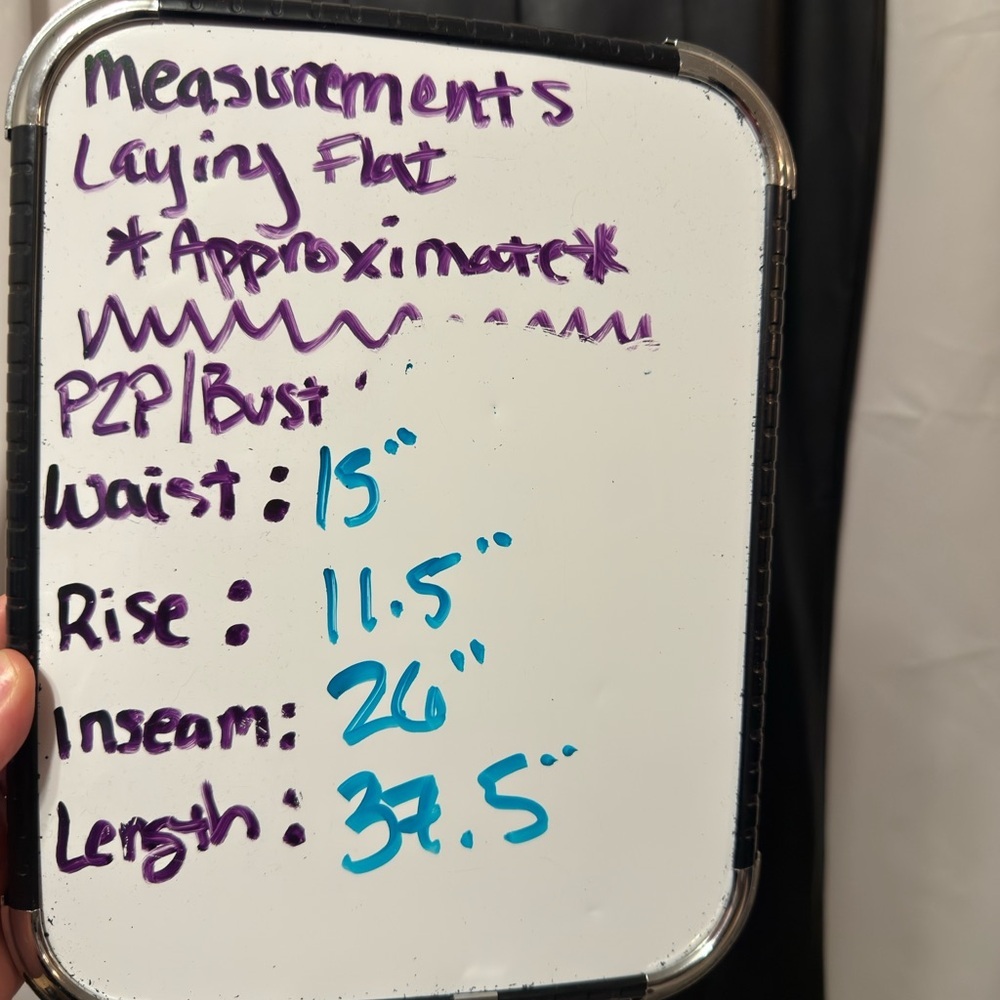 Measurements
Laying Flat
*Approximate*
P2P/Bust
Waist: 15"
Rise: 11.5"
Inseam: 26"
Length: 37.5"